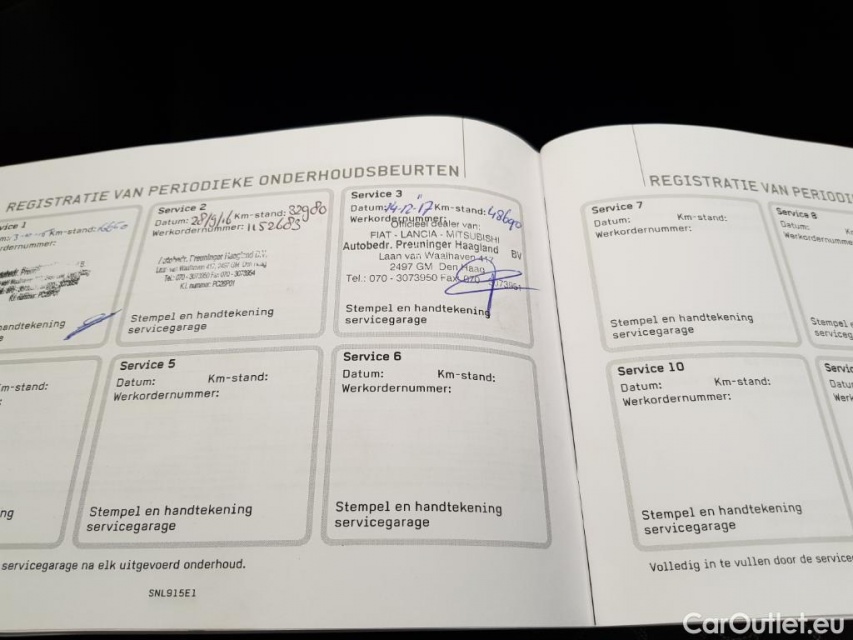 REGISTRATIE VAN PERIODIEKE ONDERHOUDSBEURTEN
Km-stand:
handtekening
Service 2
Datum: 28/9/16 Km-stand: 32980
Werkordernummer: 1152683
Autobedr. Preuninger Haagland B.V.
Stempel en handtekening
servicegarage
Service 3
Datum: 14-12-17 Km-stand: 48690
Werkordernummer:
Officieel dealer van:
FIAT - LANCIA - MITSUBISHI
Autobedr. Preuninger Haagland BV
Laan van Waalhaven 417
2497 GM Den Haag
Tel.: 070 - 3073950 Fax 070 - 3073954
Stempel en handtekening
servicegarage
Km-stand:
Service 5
Datum: Km-stand:
Werkordernummer:
Stempel en handtekening
servicegarage
Service 6
Datum: Km-stand:
Werkordernummer:
Stempel en handtekening
servicegarage
servicegarage na elk uitgevoerd onderhoud.
SNL915E1
REGISTRATIE VAN PERIODI
Service 7
Datum: Km-stand:
Werkordernummer:
Stempel en handtekening
servicegarage
Service 8
Datum:
Werkordernumme
Stempel e
serviceg
Service 10
Datum: Km-stand:
Werkordernummer:
Stempel en handtekening
servicegarage
Servic
Datu
Werk
Volledig in te vullen door de service
CarOutlet.eu